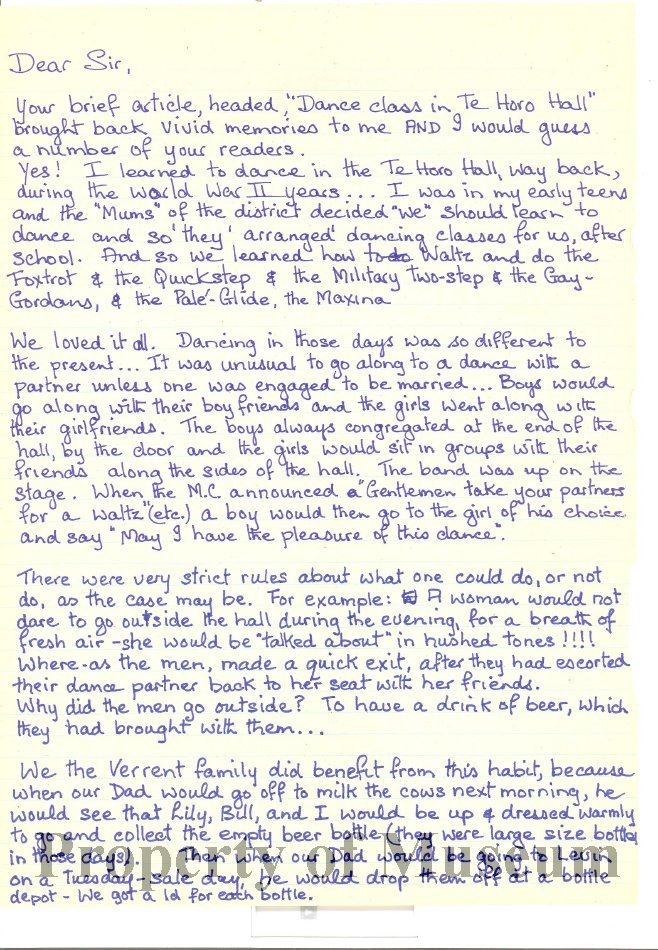 Dear Sir,
Your brief article, headed, "Dance class in Te Horo Hall"
brought back vivid memories to me AND I would guess
a number of your readers.
Yes! I learned to dance in the Te Horo Hall, way back,
during the World War II years... I was in my early teens
and the "Mums" of the district decided "we" should learn to
dance and so 'they' arranged dancing classes for us, after
school. And so we learned how to do Waltz and do the
Foxtrot & the Quickstep & the Military Two-step & the Gay-
Gordons, & the Palé-Glide, the Maxina
We loved it all. Dancing in those days was so different to
the present... It was unusual to go along to a dance with a
partner unless one was engaged to be married... Boys would
go along with their boyfriends and the girls went along with
their girlfriends. The boys always congregated at the end of the
hall, by the door and the girls would sit in groups with their
friends along the sides of the hall. The band was up on the
stage. When the M.C. announced a "Gentlemen take your partners
for a waltz" (etc.) a boy would then go to the girl of his choice
and say "May I have the pleasure of this dance".
There were very strict rules about what one could do, or not
do, as the case may be. For example: A woman would not
dare to go outside the hall during the evening, for a breath of
fresh air - she would be "talked about" in hushed tones !!!!
Where-as the men, made a quick exit, after they had escorted
their dance partner back to her seat with her friends.
Why did the men go outside? To have a drink of beer, which
they had brought with them...
We the Verrent family did benefit from this habit, because
when our Dad would go off to milk the cows next morning, he
would see that Lily, Bill, and I would be up & dressed warmly
to go and collect the empty beer bottle (they were large size bottles
in those days). Then when our Dad would be going to Levin
on a Tuesday - sale day, he would drop them off at a bottle
depot - We got a 1d for each bottle.
Property of Museum